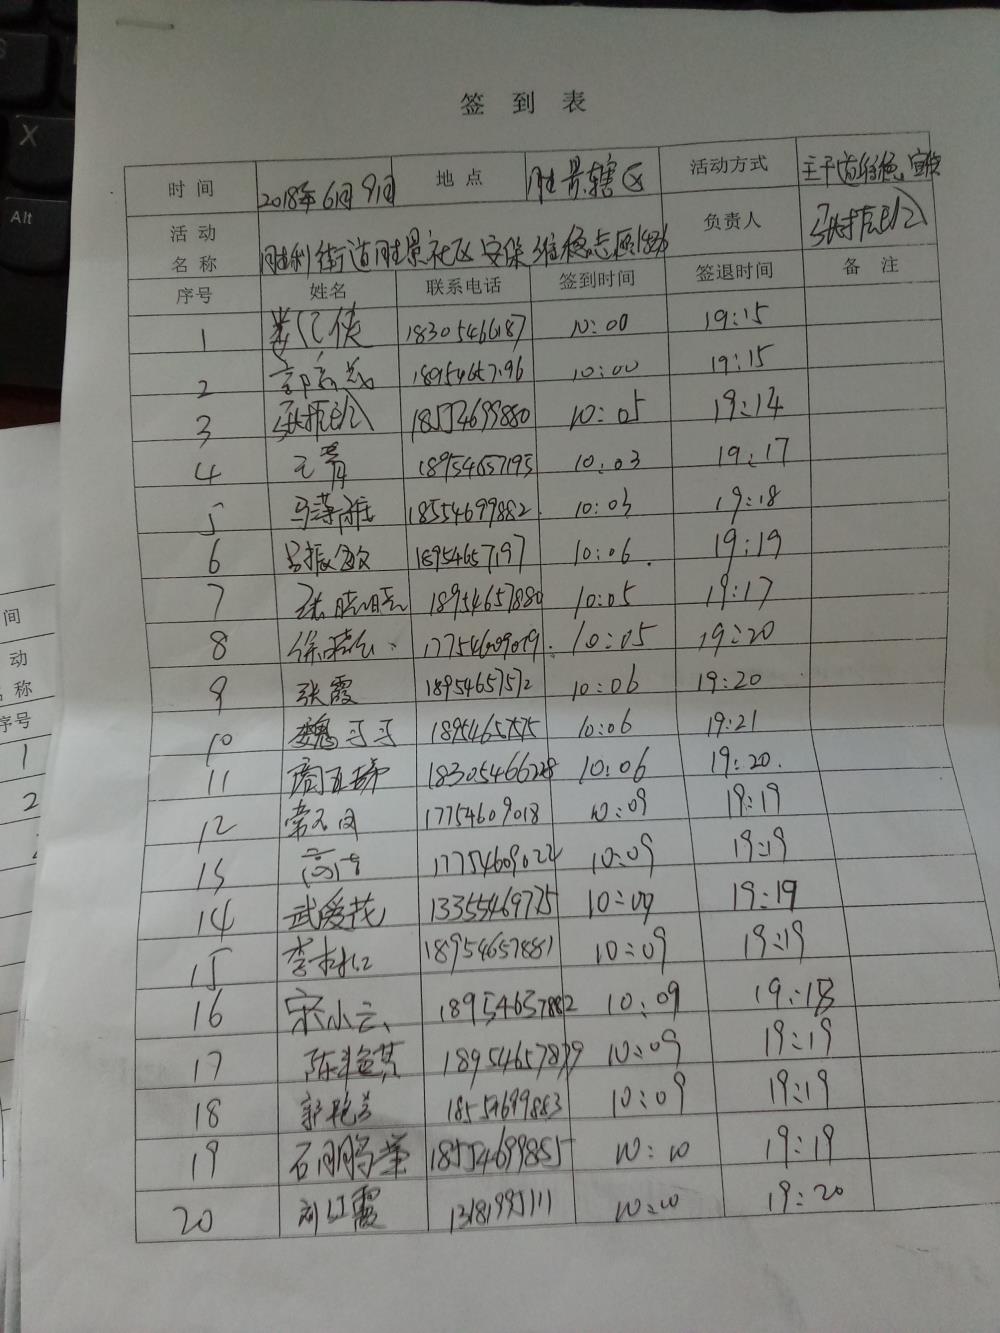 签 到 表
时 间 2018年6月9日 地 点 胜景辖区 活动方式 主干道维稳、宣传
活 动 名 称 胜利街道胜景社区安保维稳志愿 负责人
序号 姓名 联系电话 签到时间 签退时间 备 注
1 18305466187 10:00 19:15
2 18954657196 10:00 19:15
3 18554699880 10:05 19:14
4 王青 18954657195 10:03 19:17
5 18554699882 10:03 19:18
6 吕振敏 18954657197 10:06 19:19
7 张晓明 18954657880 10:05 19:17
8 徐 17754609019 10:05 19:20
9 张霞 18954657572 10:06 19:20
10 魏可可 18954657575 10:06 19:21
11 周玉娣 18305466228 10:06 19:20
12 常 17754609018 10:09 19:19
13 高 17754609022 10:09 19:19
14 武爱花 13355469775 10:09 19:19
15 李 18954657881 10:09 19:19
16 宋小云 18954657882 10:09 19:18
17 陈 18954657879 10:09 19:19
18 郭艳芳 18554699883 10:09 19:19
19 石 18554699885 10:10 19:19
20 刘红霞 10:10 19:20
间
动
名 称
序号
1
2